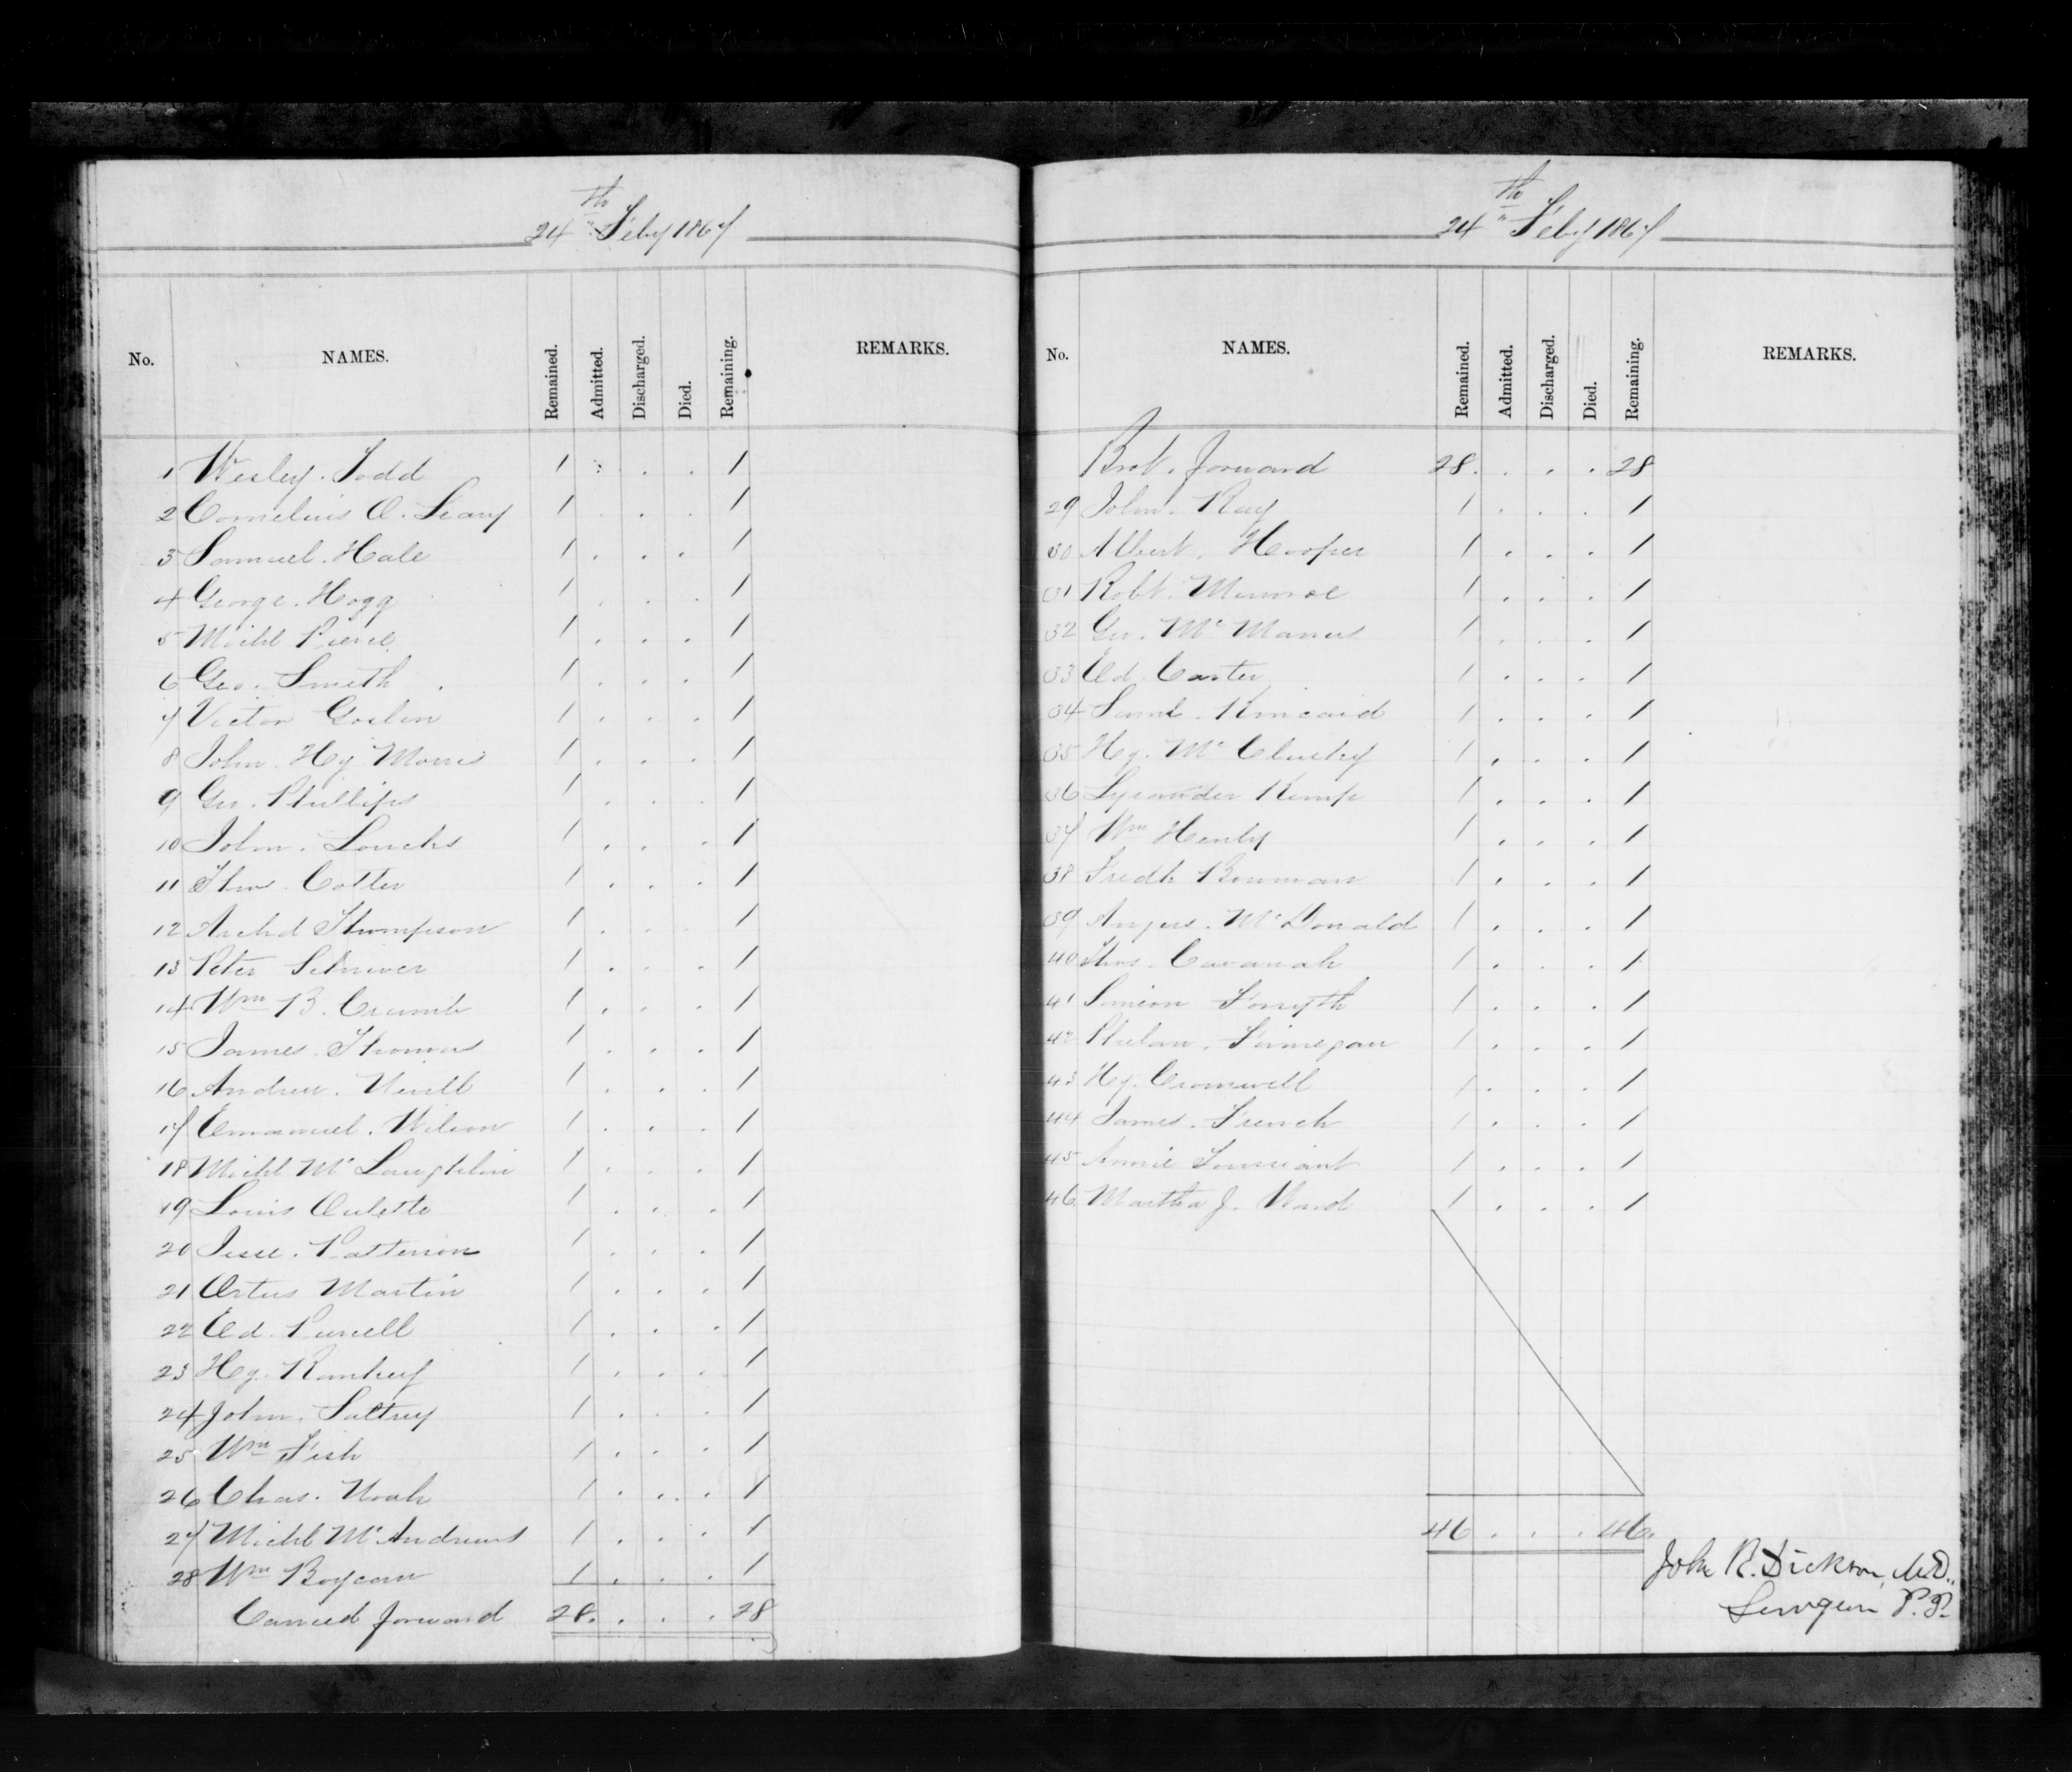 24th Feby 1867
No. NAMES. Remained. Admitted. Discharged. Died. Remaining. REMARKS.
1 Wesley. Todd 1 . . . 1
2 Cornelius O. Leary 1 . . . 1
3 Samuel. Hale 1 . . . 1
4 George. Hogg 1 . . . 1
5 Michl Pierce 1 . . . 1
6 Geo. Smith 1 . . . 1
7 Victor Goslin 1 . . . 1
8 John. Hy. Morris 1 . . . 1
9 Geo. Phillips 1 . . . 1
10 John. Loucks 1 . . . 1
11 Thos. Cotter 1 . . . 1
12 Archd Thompson 1 . . . 1
13 Peter Schriver 1 . . . 1
14 Wm B. Crumb 1 . . . 1
15 James. Thomas 1 . . . 1
16 Andrew. Nevill 1 . . . 1
17 Emanuel. Wilson 1 . . . 1
18 Michl Mc Laughlin 1 . . . 1
19 Louis Oulette 1 . . . 1
20 Jesse. Patterson 1 . . . 1
21 Artus Martin 1 . . . 1
22 Ed. Pursell 1 . . . 1
23 Hy. 1 . . . 1
24 John. 1 . . . 1
25 Wm Fish 1 . . . 1
26 Chas. Noah 1 . . . 1
27 Michl Mc Andrews 1 . . . 1
28 Wm 1 . . . 1
Carried forward 28 . . . 28
24th Feby 1867
No. NAMES. Remained. Admitted. Discharged. Died. Remaining. REMARKS.
Brot. forward 28 . . . 28
29 John. Ray 1 . . . 1
30 Albert. Hooper 1 . . . 1
31 Robt. Munroe 1 . . . 1
32 Geo. Mc Manus 1 . . . 1
33 Ed. Carter 1 . . . 1
34 Saml. Kincaid 1 . . . 1
35 Hy. Mc Clusky 1 . . . 1
36 Lysander Kemp 1 . . . 1
37 Wm Henly 1 . . . 1
38 Fredk Bowman 1 . . . 1
39 Angus. Mc Donald 1 . . . 1
40 Thos. Cavanah 1 . . . 1
41 Simeon Forsyth 1 . . . 1
42 Phelan. Finnegan 1 . . . 1
43 Hy. Cromwell 1 . . . 1
44 James. French 1 . . . 1
45 Annie Toussiant 1 . . . 1
46 Martha J. Ward 1 . . . 1
46 . . . 46
John R. Dickson, M.D.,
Surgeon P.P.